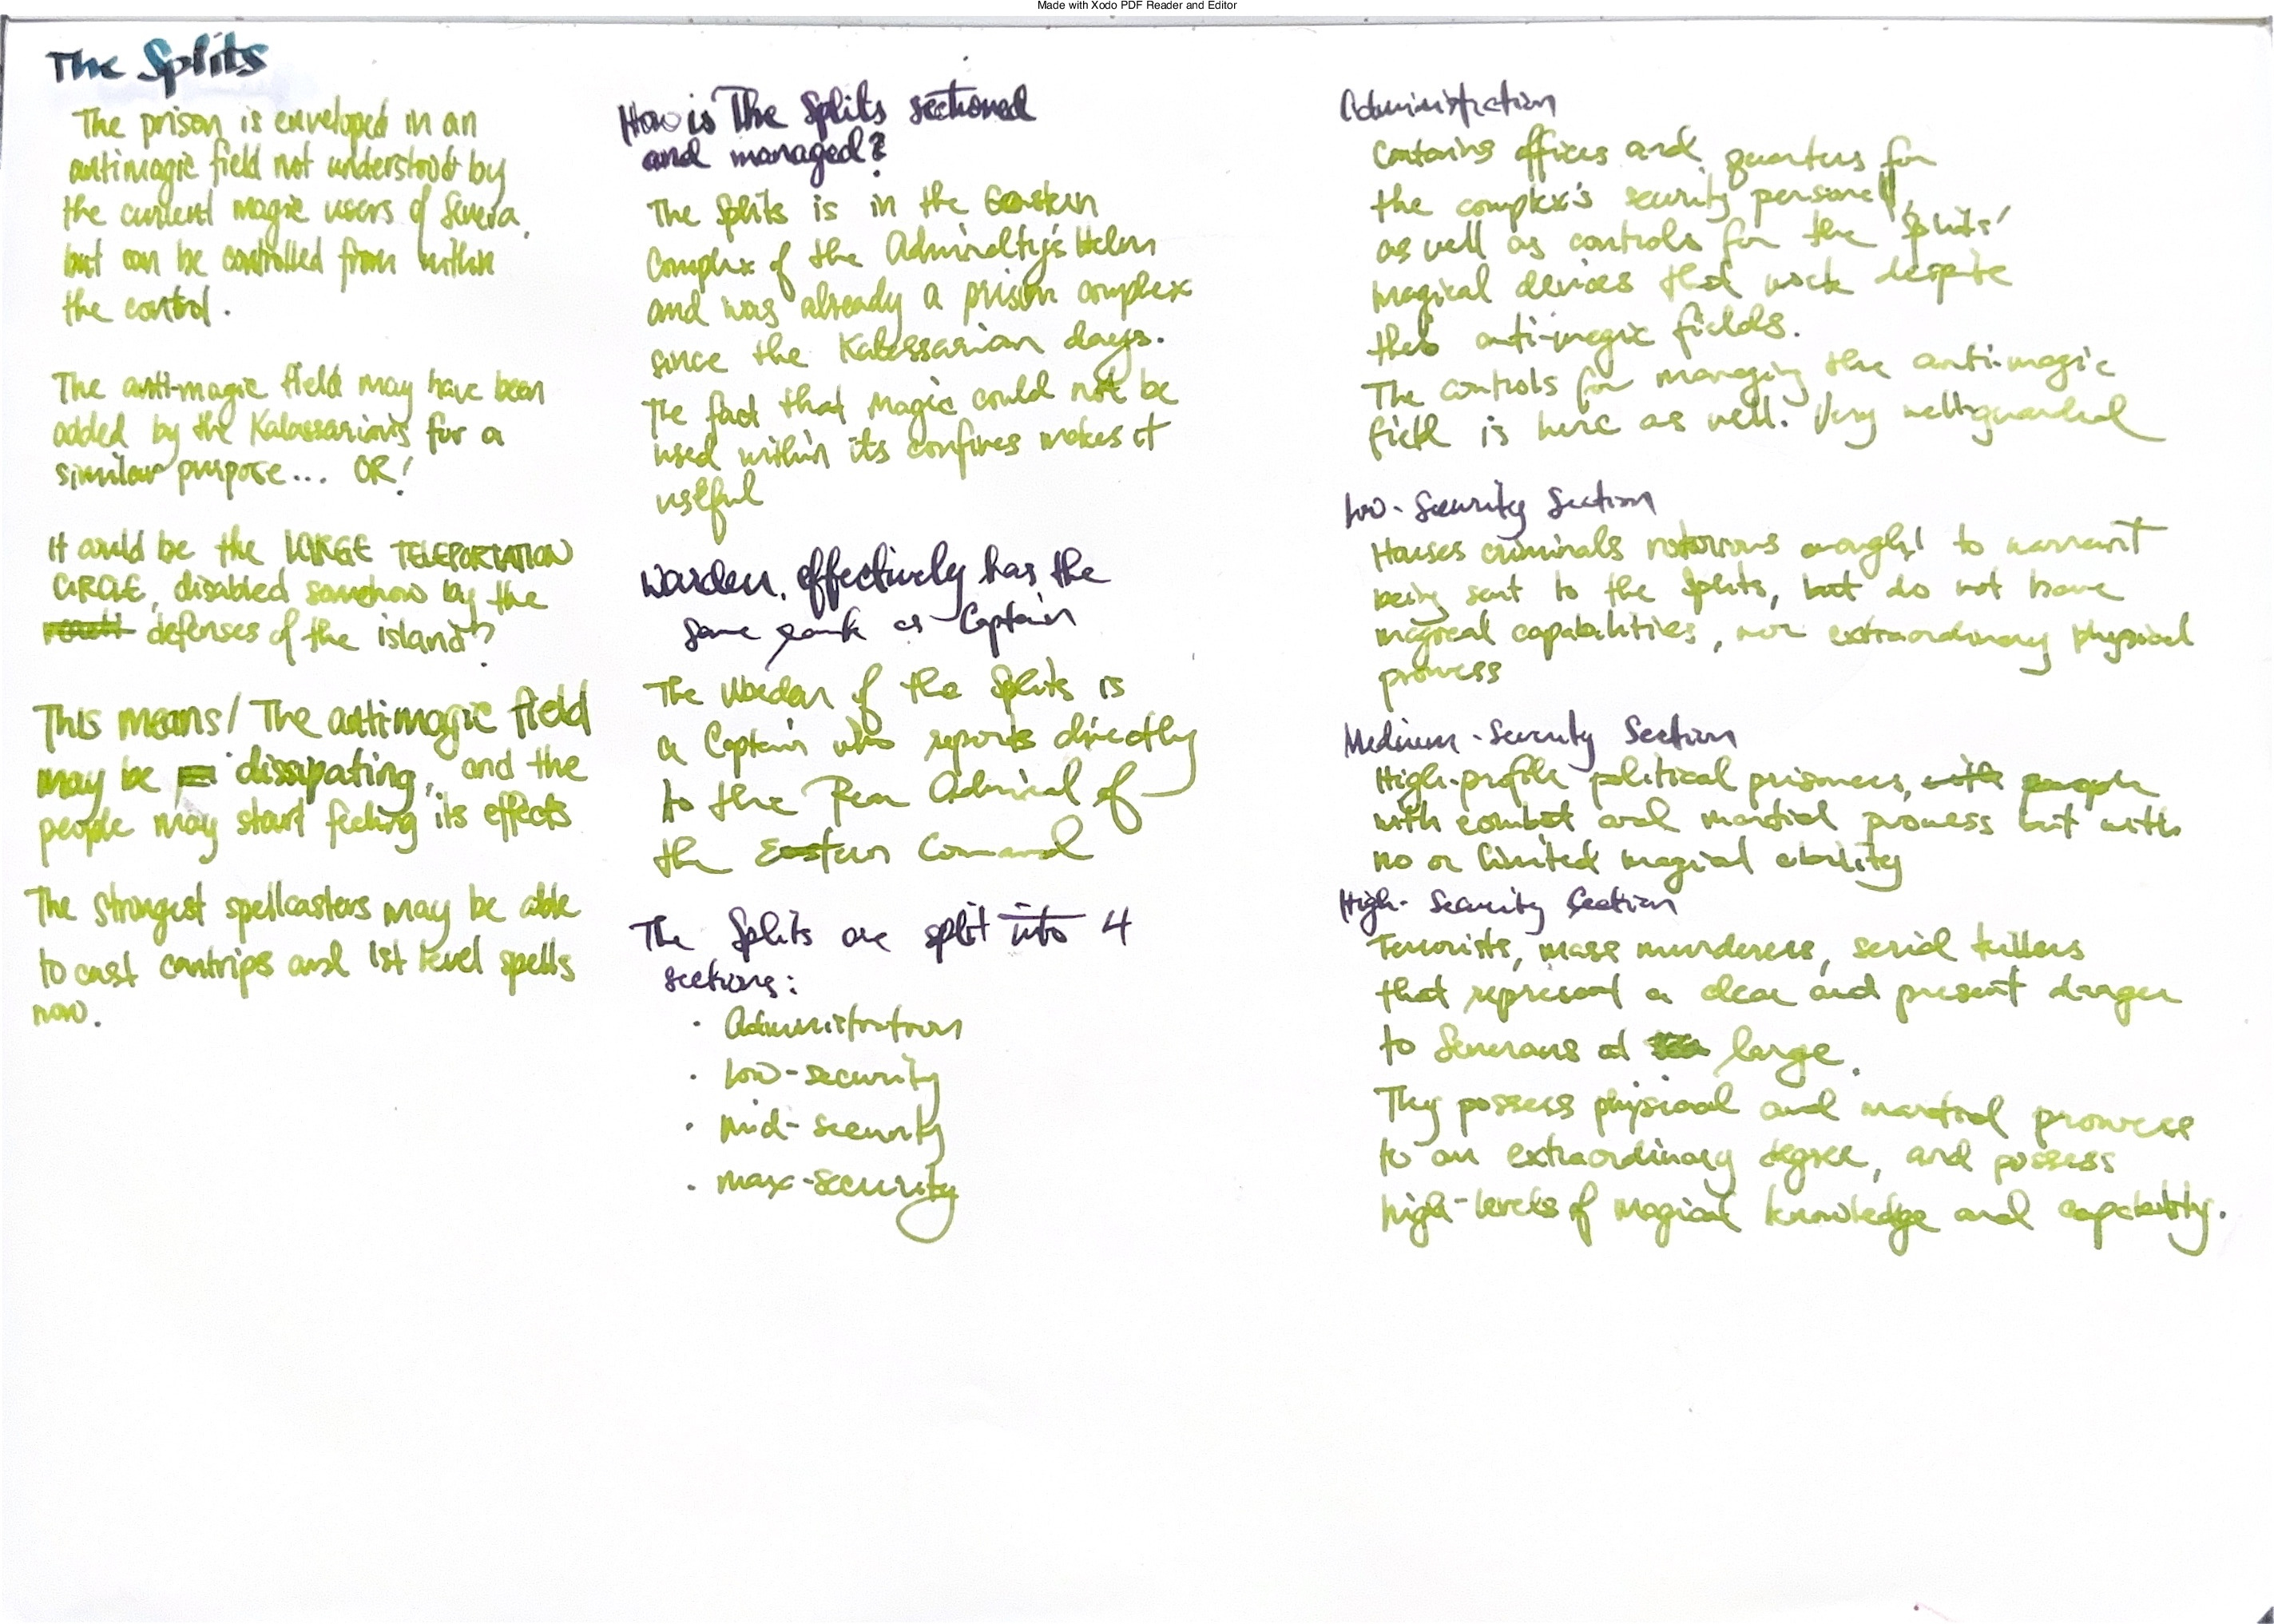 Made with Xodo PDF Reader and Editor
The Splits
The prison is enveloped in an
antimagic field not understood by
the current magic users of Senera,
but can be controlled from within
the control.
The anti-magic field may have been
added by the Kalassarians for a
similar purpose... OR!
It could be the LARGE TELEPORTATION
CIRCLE, disabled somehow by the
defenses of the island?
This means/ The antimagic field
may be dissipating, and the
people may start feeling its effects
The strongest spellcasters may be able
to cast cantrips and 1st level spells
now.
How is The Splits sectioned
and managed?
The Splits is in the Eastern
Complex of the Admiralty's Helm
and was already a prison complex
since the Kalassarian days.
The fact that magic could not be
used within its confines makes it
useful
Warden, effectively has the
same rank as Captain
The Warden of the Splits is
a Captain who reports directly
to the Rear Admiral of
the Eastern Command
The Splits are split into 4
sections:
• Administration
• Low-security
• mid-security
• max-security
Administration
Contains offices and quarters for
the complex's security personell,
as well as controls for the Splits'
magical devices that work despite
the anti-magic fields.
The controls for managing the anti-magic
field is here as well. Very well-guarded
Low-Security Section
Houses criminals notorious enough to warrant
being sent to the Splits, but do not have
magical capabilities, nor extraordinary physical
prowess
Medium-Security Section
High-profile political prisoners, with people
with combat and martial prowess but with
no or limited magical ability
High-Security Section
Terrorists, mass murderers, serial killers
that represent a clear and present danger
to Senerans at large.
They possess physical and martial prowess
to an extraordinary degree, and possess
high-levels of magical knowledge and capability.